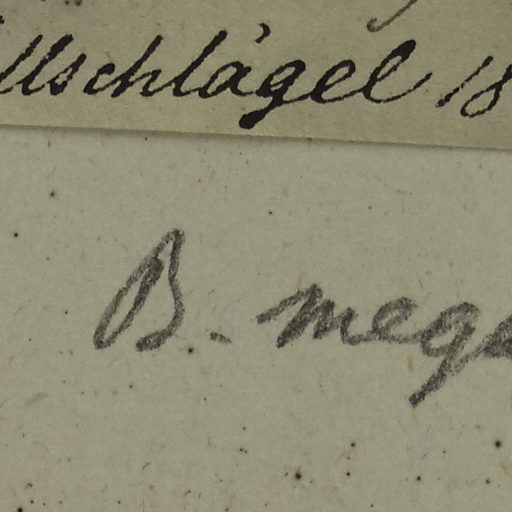 llschlägel 18
B. mega